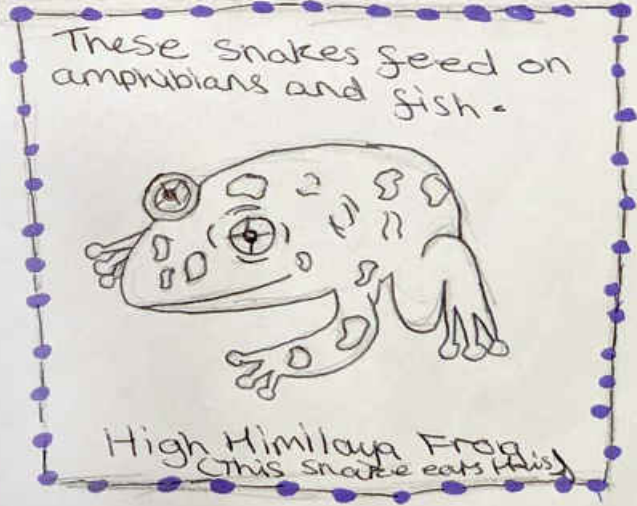 These snakes feed on
amphibians and fish.
High Himilaya Frog
(This snake eats this)